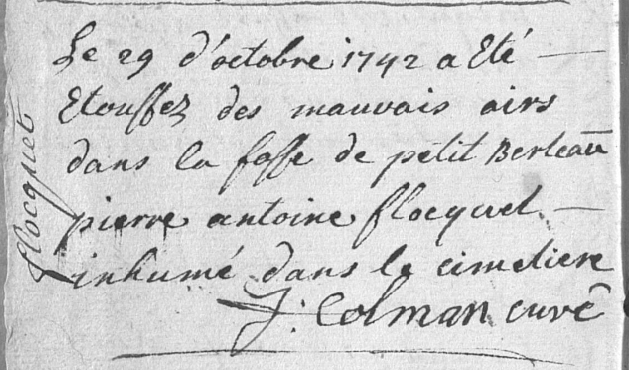 flocquet
Le 29 d'octobre 1742 a Eté
Etouffez des mauvais airs
dans la fosse de petit Berteau
pierre antoine flocquet
inhumé dans le cimetiere
J: Colman curé